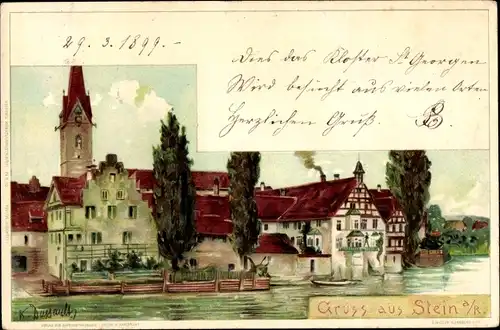 29. 3. 1899. -
Dies das Kloster St. Georgen
Wird besucht aus vielen Orten
Herzlichen Gruß.
Gruss aus Stein a/R.